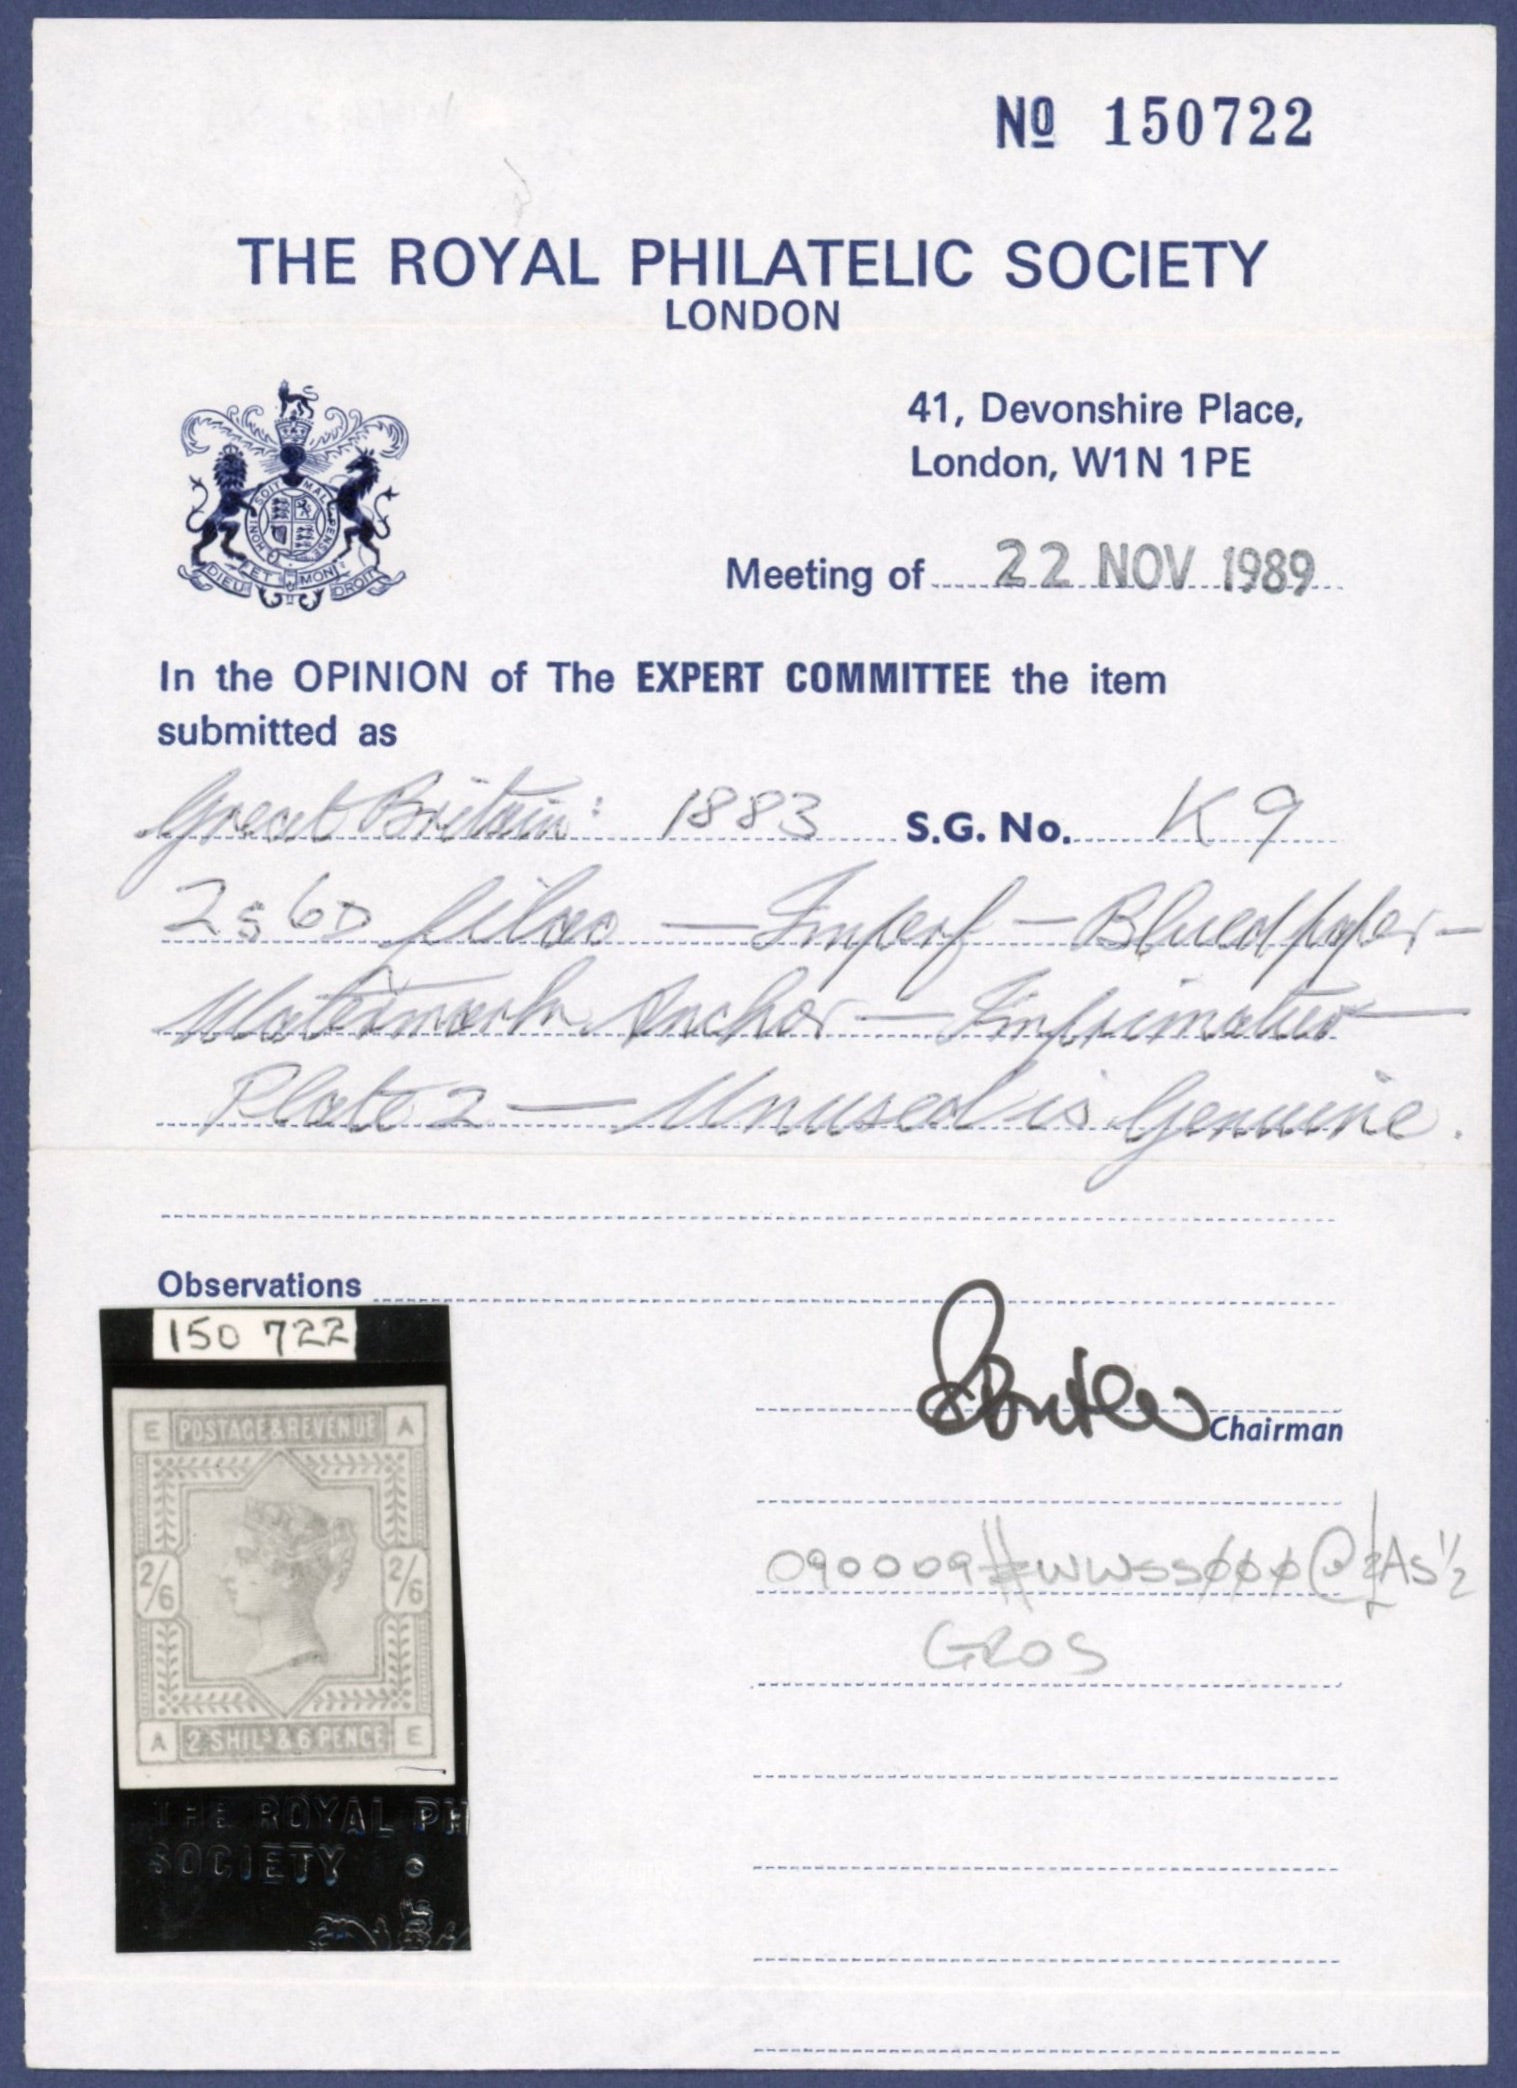 Nº 150722
THE ROYAL PHILATELIC SOCIETY
LONDON
41, Devonshire Place,
London, W1N 1PE
HONI SOIT MAL PENSE
DIEU ET MON DROIT
Meeting of 22 NOV 1989
In the OPINION of The EXPERT COMMITTEE the item
submitted as
Great Britain: 1883 S.G. No. K9
2s 6D lilac — Imperf — Blued paper —
Watermark Anchor — Imprimatur —
Plate 2 — Unused is Genuine.
Observations
150 722
Chairman
E POSTAGE & REVENUE A
2/6 2/6
A 2 SHILS & 6 PENCE E
090009#WWSSφφφ@
GROS
THE ROYAL PH
SOCIETY